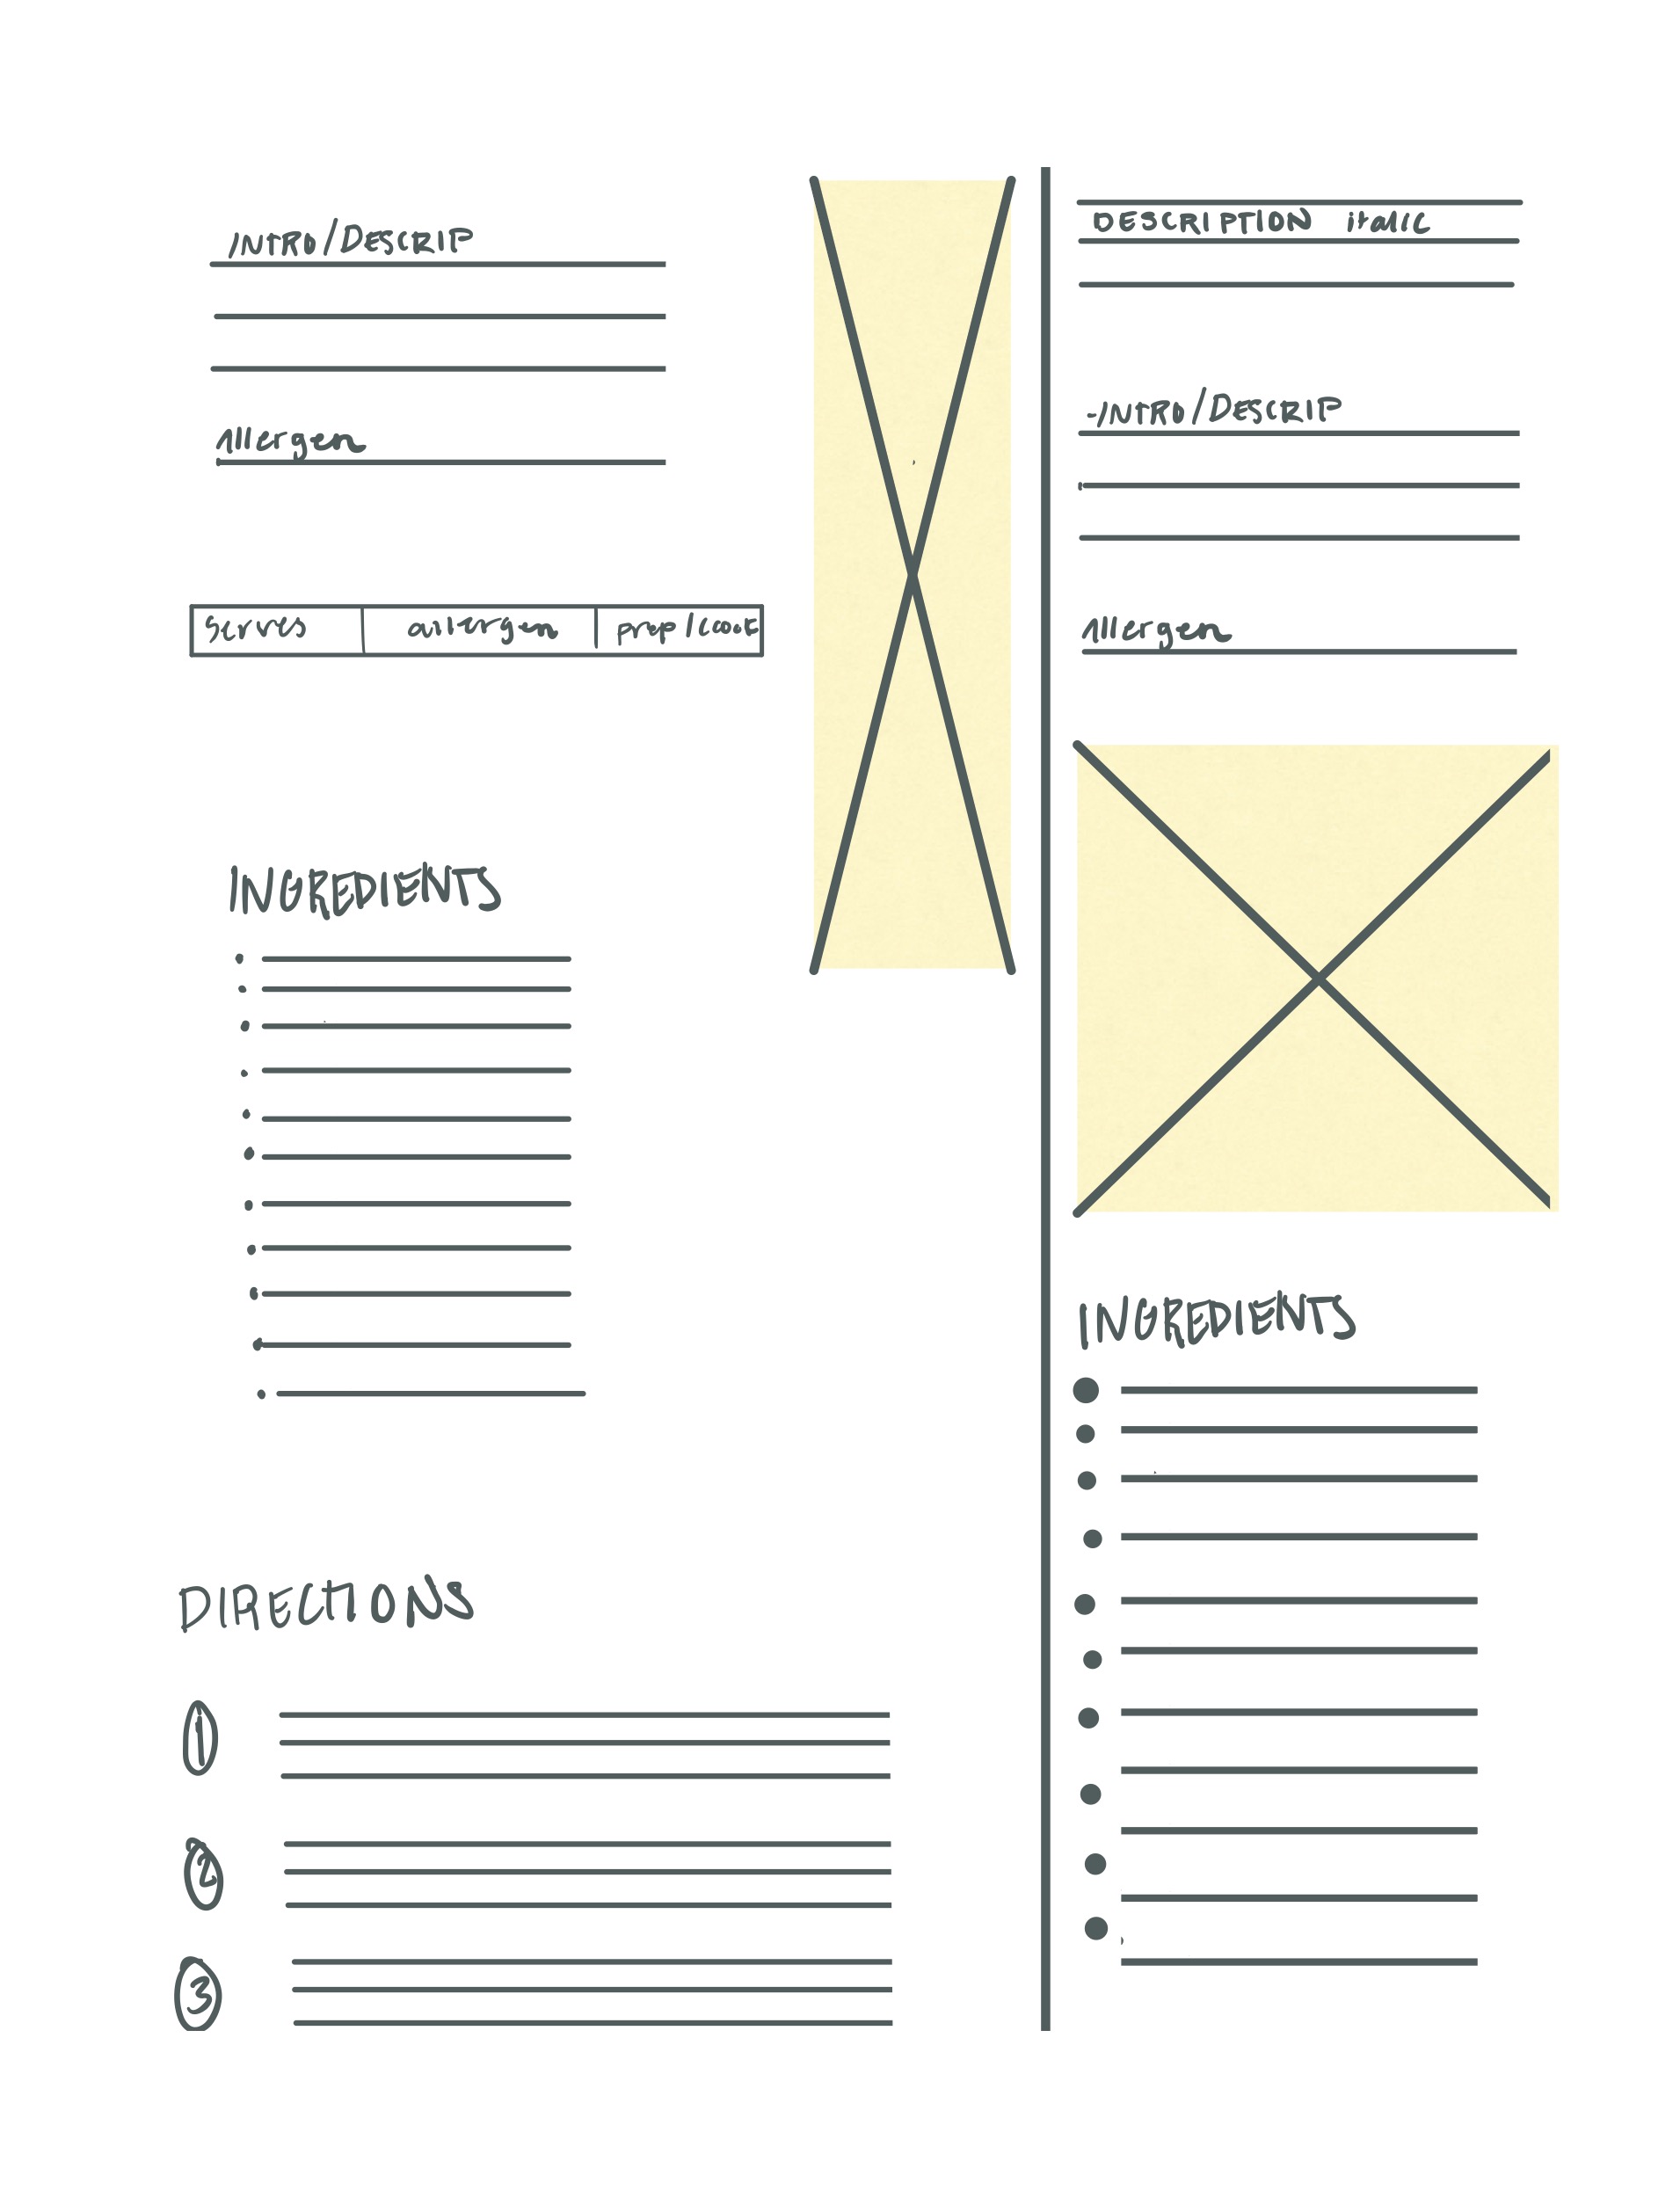 INTRO/DESCRIP
Allergen
serves
prep/cook
INGREDIENTS
DIRECTIONS
1
2
3
DESCRIPTION italic
-INTRO/DESCRIP
Allergen
INGREDIENTS